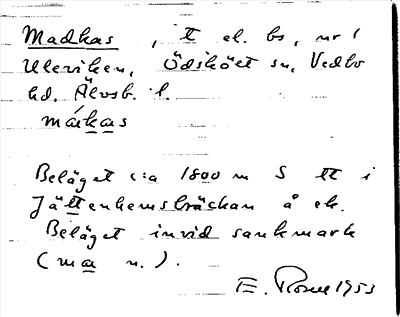 Madkas, tt ek. bs, nr 1
Uleviken, Ödsköet sn, Vedbo
hd. Älvsb. l.
márkas
Beläget c:a 1800 m S tt i
Jättenhemsbräckan å ek.
Beläget invid sankmark
(ma n.).
E. Rosell 1953